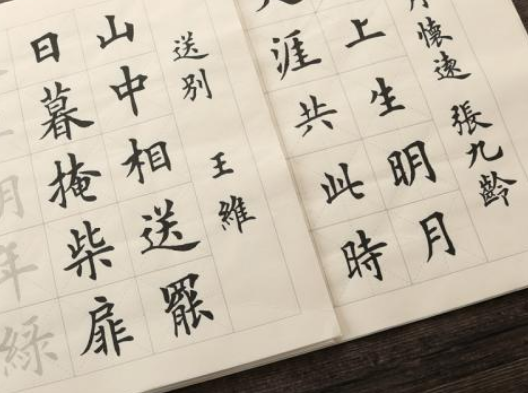 月懷遠 張九齡
上生明月
涯共此時
送別 王維
山中相送罷
日暮掩柴扉
明年綠